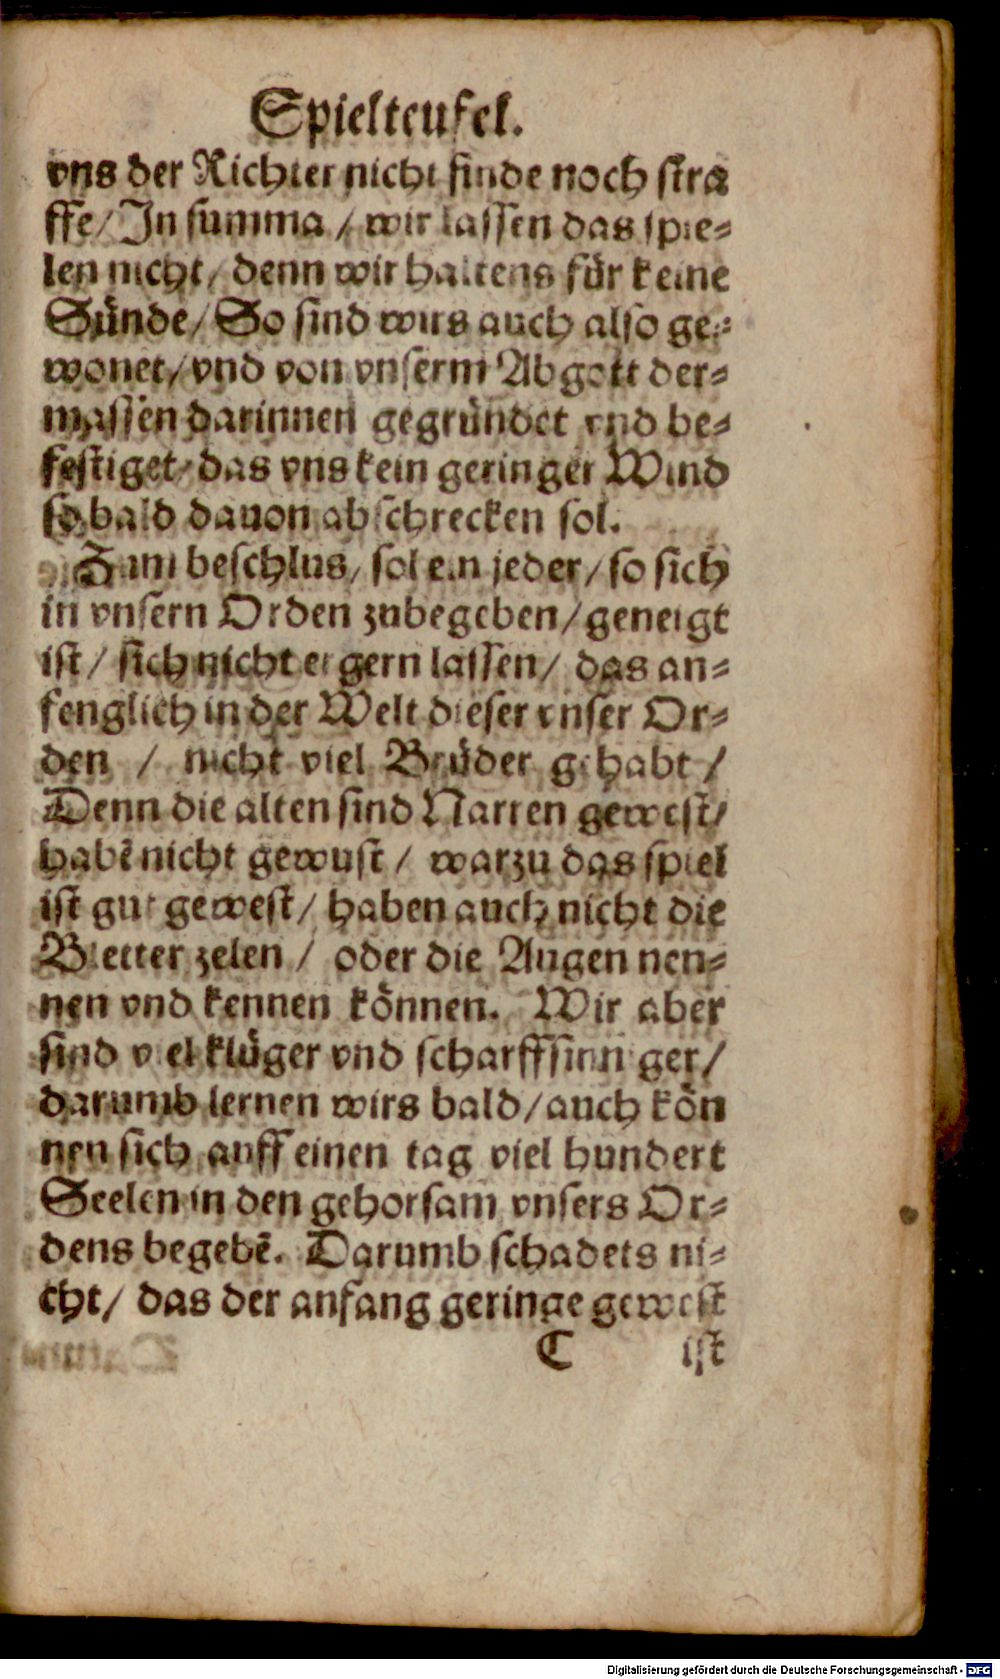 Spielteufel.
vns der Richter nicht finde noch stra
ffe/ In summa / wir lassen das spie⸗
len nicht/ denn wir haltens für keine
Sünde/ So sind wirs auch also ge⸗
wonet/ vnd von vnserm Abgott der⸗
massen darinnen gegründet vnd be⸗
festiget/ das vns kein geringer Wind
so bald dauon abschrecken sol.
Zum beschlus/ sol ein jeder/ so sich
in vnsern Orden zubegeben/ geneigt
ist/ sich nicht ergern lassen/ das an⸗
fenglich in der Welt dieser vnser Or⸗
den / nicht viel Brüder gehabt /
Denn die alten sind Narren gewest/
habē nicht gewust / warzu das spiel
ist gut gewest/ haben auch nicht die
Bletter zelen / oder die Augen nen⸗
nen vnd kennen können. Wir aber
sind viel klüger vnd scharffsinniger/
darumb lernen wirs bald/ auch kön
nen sich auff einen tag viel hundert
Seelen in den gehorsam vnsers Or⸗
dens begebē. Darumb schadets ni⸗
cht/ das der anfang geringe gewest
C ist
Digitalisierung gefördert durch die Deutsche Forschungsgemeinschaft - DFG